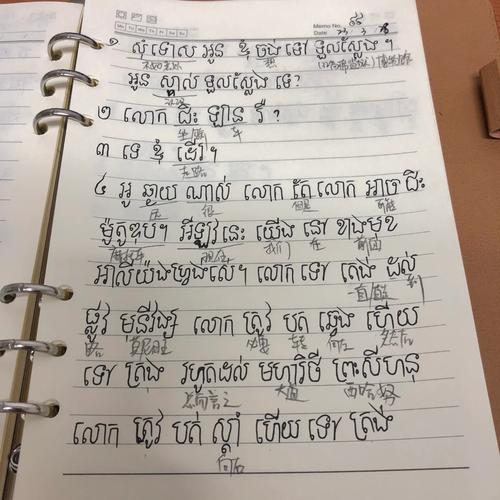 Memo No. ៩៩
Mo Tu We Th Fr Sa Su
Date 23 / 3 /
១ សុំទោស អូន ខ្ញុំ ចង់ ទៅ ទួលស្លែង ។
不好意思 想
អូន ស្គាល់ ទួលស្លែង ទេ?
认识
២ លោក ជិះ ឡាន រឺ ?
坐骑 车
៣ ទេ ខ្ញុំ ដើរ។
走路
៤ អូ ឆ្ងាយ ណាស់ លោក តែ លោក អាច ជិះ
远 很 但是 可能
ម៉ូតូឌុប។ អីឡូវនេះ យើង នៅ ខាងមុខ
摩托车 现在 我们 在 前面
អាលីយ៉ង់ហ្វ្រង់សេ។ លោក ទៅ ត្រង់ ដល់
一直 到
ផ្លូវ មុនីវង្ស លោក ត្រូវ បត់ ឆ្វេង ហើយ
路 莫尼旺 必要 转 向左 然后
ទៅ ត្រង់ រហូតដល់ មហាវិថី ព្រះសីហនុ
总而言之 大道 西哈努
លោក ត្រូវ បត់ ស្ដាំ ហើយ ទៅ ត្រង់
向右